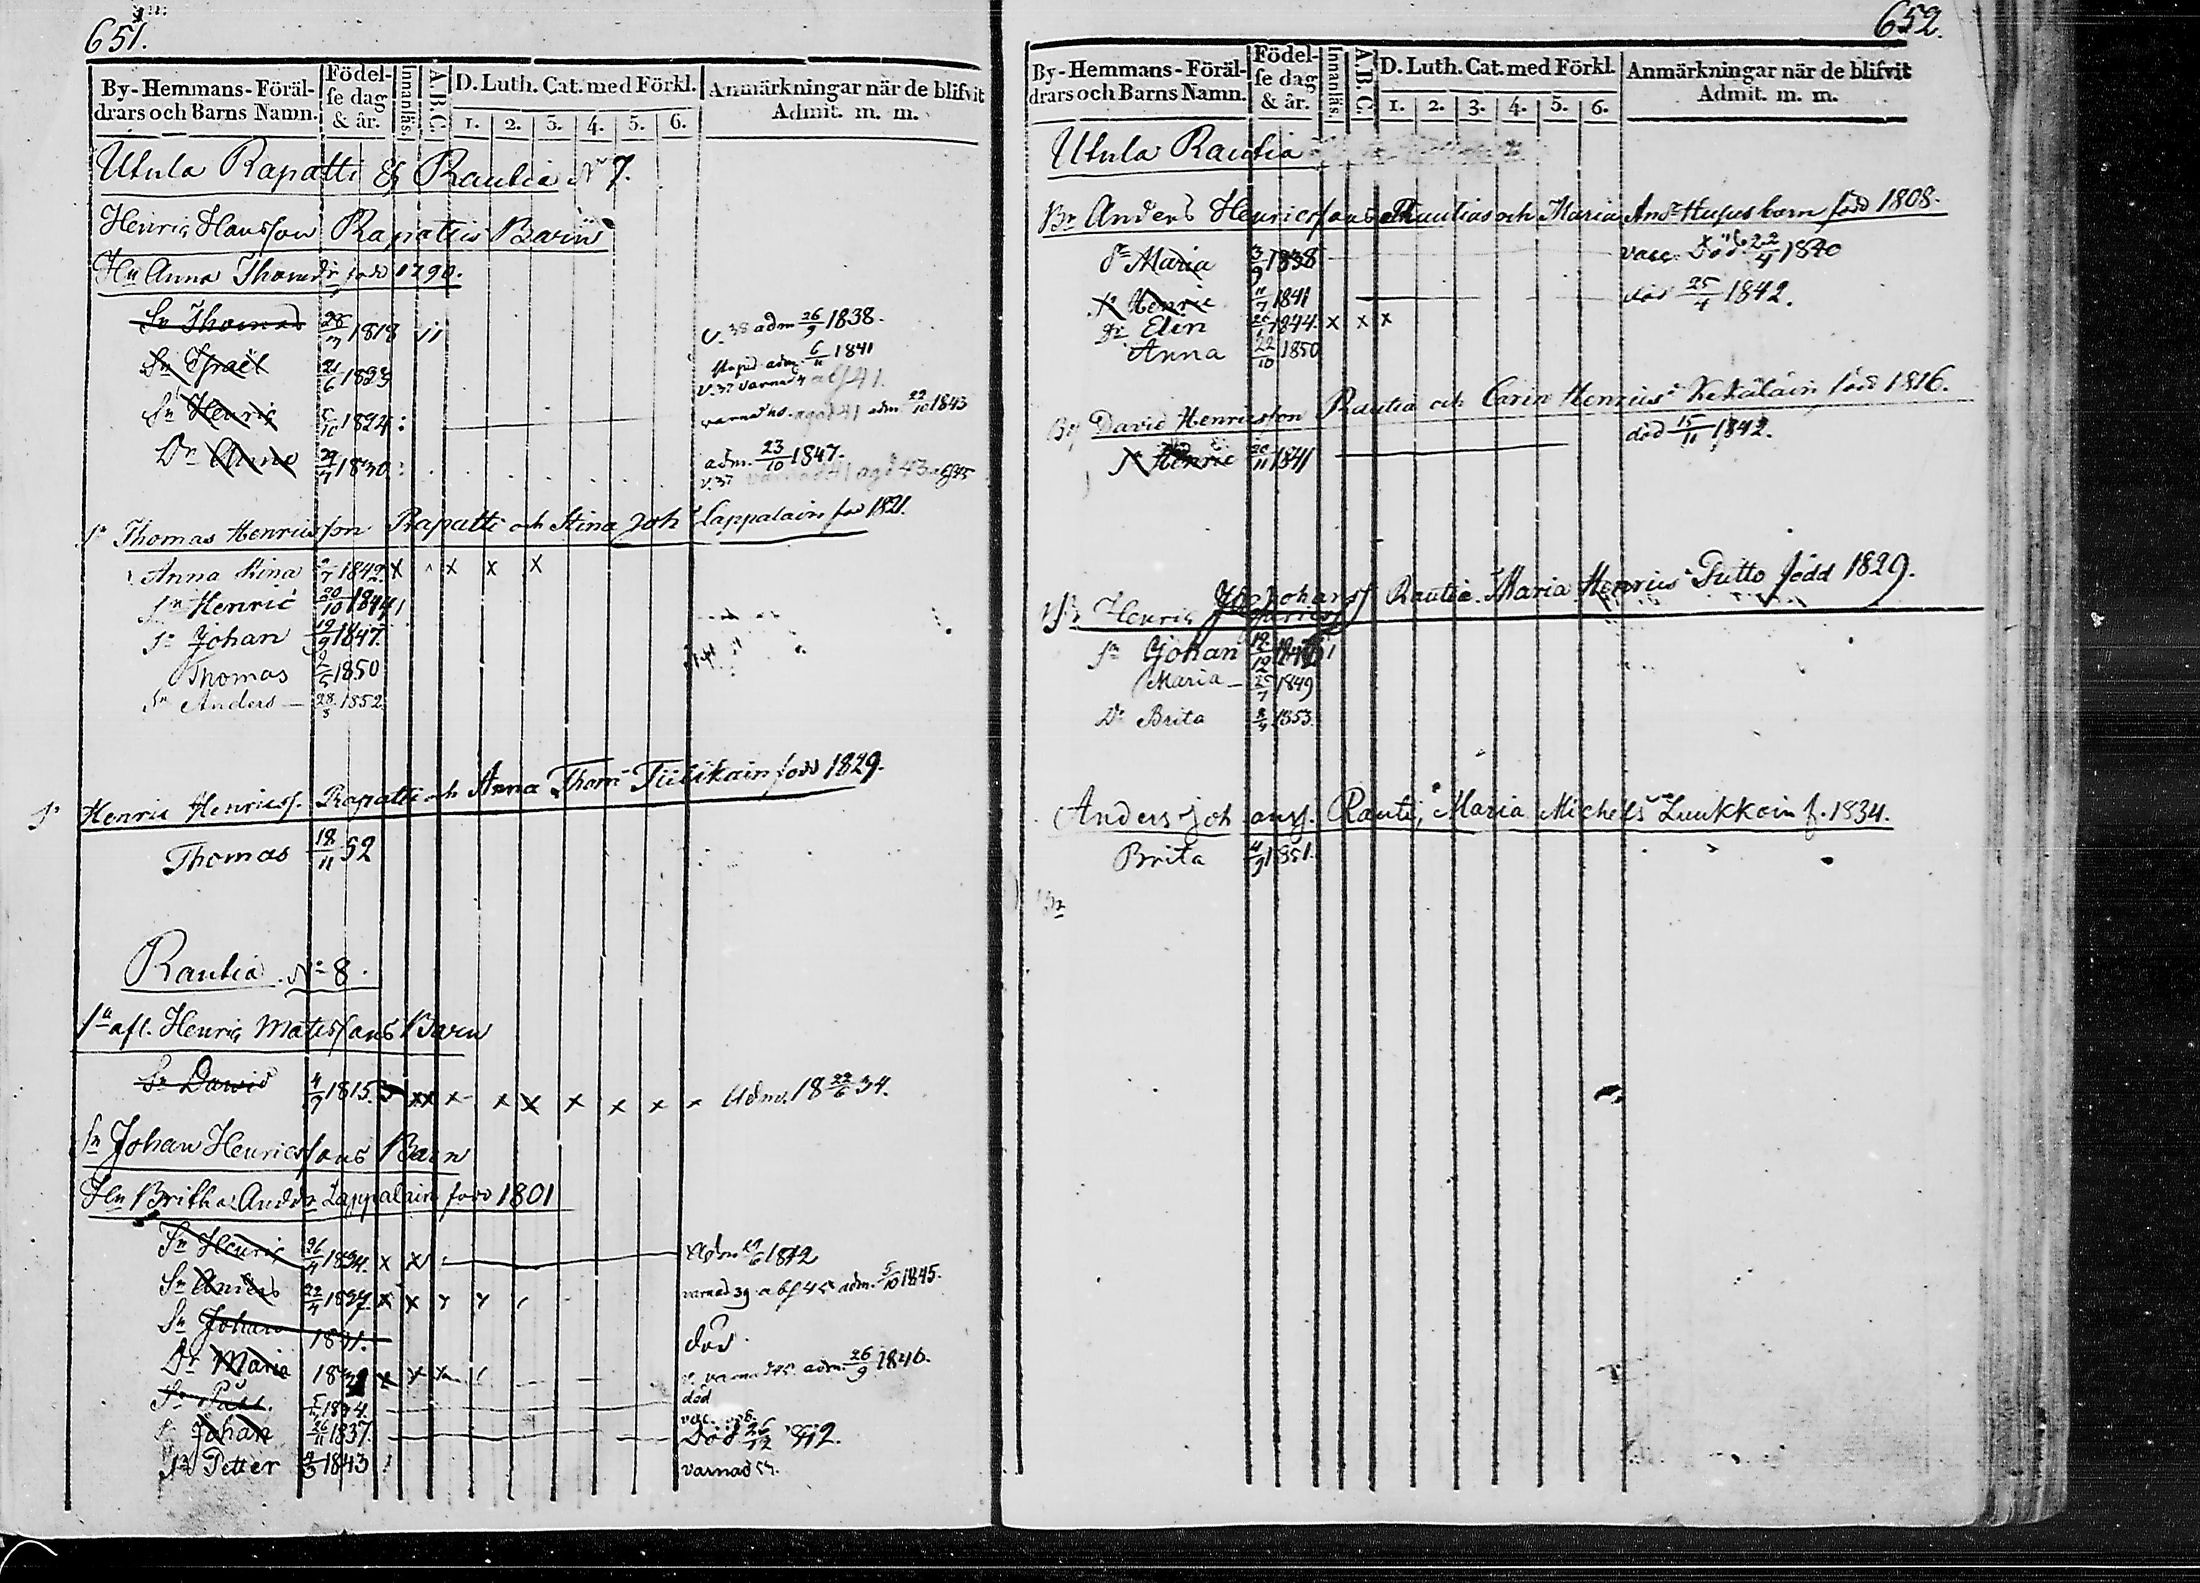 651.
By-Hemmans-Föräl-
drars och Barns Namn.
Födel-
se dag
& år.
Innanläs.
A.B.C.
D. Luth. Cat. med Förkl.
1. 2. 3. 4. 5. 6.
Anmärkningar när de blifvit
Admit. m. m.
Utula Rapatti & Rautia No 7.
Henric Hansson Rapattis Barn
Hu Anna Thomdr född 1790.
Sn Thomas 28/3 1818 adm 26/9 1838.
Sn Israël 21/6 1823 adm. 6/11 1841
v. 37 varnad
Sn Henric 5/10 1824 adm 22/10 1843
Dr Anna 29/7 1830 adm. 23/10 1847.
v. 37
Sn Thomas Henricsson Rapatti och Stina Joh Lappalain född 1821.
Anna Stina 1842 x x x x
Sn Henric 20/10 1844
Sn Johan 19/9 1847.
Thomas 1850
Sn Anders — 28/3 1852
Sn Henric Henricss. Rapatti och Anna Thom Tiilikain född 1829.
Thomas 18/11 52
Rautia No 8.
Sn afl. Henric Matssons Barn
Sn David 4/9 1815. x x x x x x x x Adm. 18 22/6 34.
Sn Johan Henricssons Barn
Hu Britha Andr Lappalain född 1801
Sn Henric 26/4 1824. x x Adm 1842
Sn Anders 22/4 1827 x x varnad 39 adm. 5/10 1845.
Sn Johan 1831. död
Dr Maria x x x adm. 26/9 1846.
Sn Påhl. 1834. död
Sn Johan 26/11 1837. Död 26/12
Sn Petter 1843 varnad
652.
By-Hemmans-Föräl-
drars och Barns Namn.
Födel-
se dag
& år.
Innanläs.
A.B.C.
D. Luth. Cat. med Förkl.
1. 2. 3. 4. 5. 6.
Anmärkningar när de blifvit
Admit. m. m.
Utula Rautia
Br Anders Henricssons Rautias och Maria Ands Hupus barn född 1808.
Maria 3/9 1838 vacc. Död 22/4 1840
Sn Henric 11/7 1841 död 25/4 1842.
Dr Elin 1844. x x x
Anna 22/10 1850
Br David Henricsson Rautia och Carin Henrics Kekäläin född 1816.
Sn Henric 20/11 1841 död 15/11 1842.
Sn Henric Johanss Rautia. Maria Henrics Putto född 1829.
Sn Johan 19/12
Maria — 1849
Dr Brita 1853.
Anders Johanss. Rautia, Maria Michels Luukkoin f. 1834.
Brita 1851.
Br